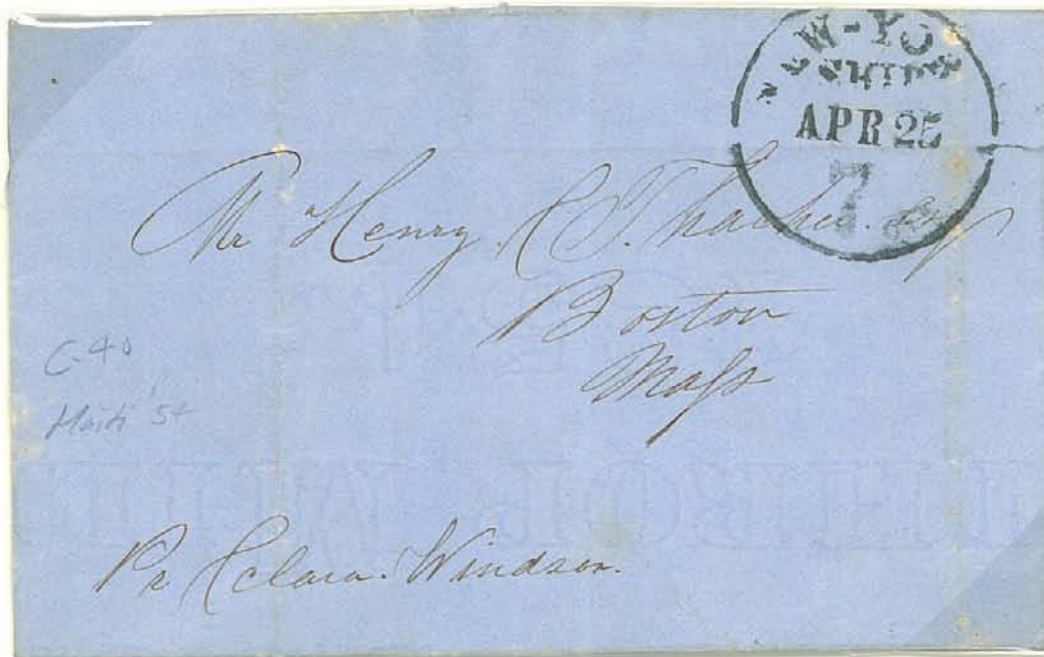 NEW-YO
SHIP
APR 25
7
Mr Henry C Thacher. Esq
Boston
Mass
C-40
Haiti '54
Pr Clara. Windsor.